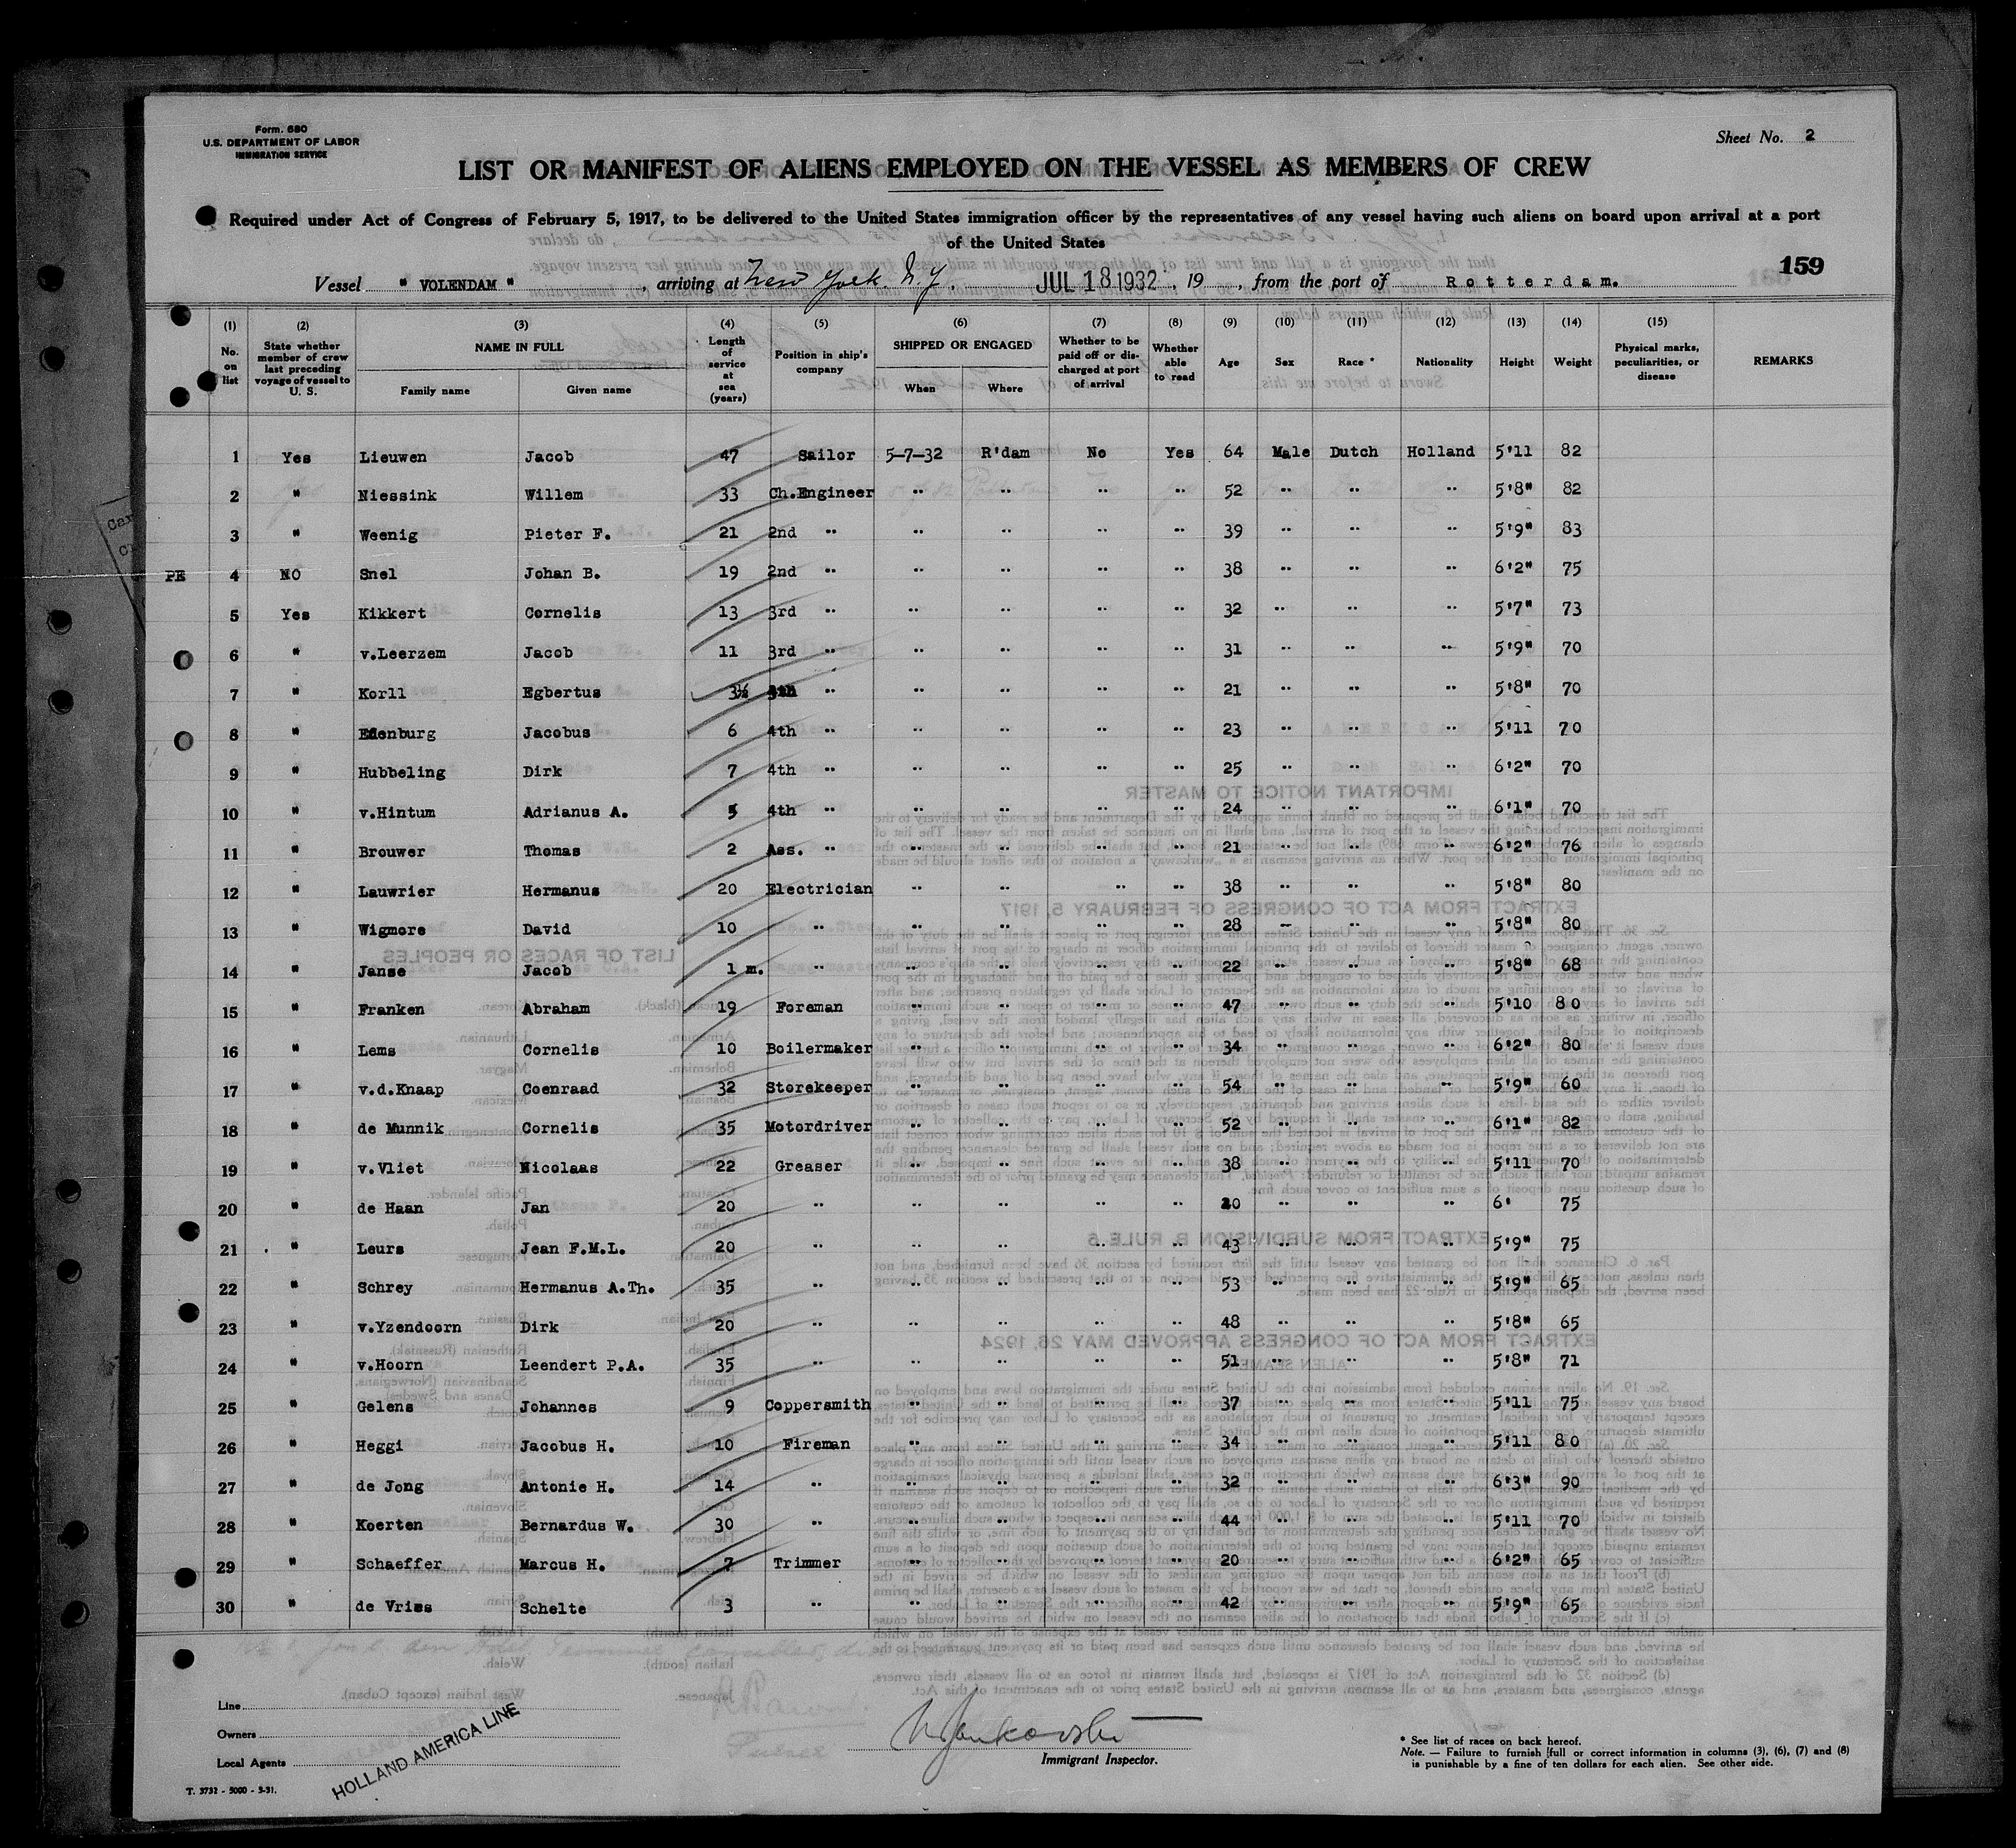 Form. 680
U.S. DEPARTMENT OF LABOR
IMMIGRATION SERVICE
Sheet No. 2
LIST OR MANIFEST OF ALIENS EMPLOYED ON THE VESSEL AS MEMBERS OF CREW
Required under Act of Congress of February 5, 1917, to be delivered to the United States immigration officer by the representatives of any vessel having such aliens on board upon arrival at a port
of the United States
159
Vessel " VOLENDAM ", arriving at New York. N.Y. JUL 18 1932, 19 , from the port of Rotterdam.
(1) No. on list (2) State whether member of crew last preceding voyage of vessel to U. S. (3) NAME IN FULL Family name Given name (4) Length of service at sea (years) (5) Position in ship's company (6) SHIPPED OR ENGAGED When Where (7) Whether to be paid off or discharged at port of arrival (8) Whether able to read (9) Age (10) Sex (11) Race * (12) Nationality (13) Height (14) Weight (15) Physical marks, peculiarities, or disease REMARKS
1 Yes Lieuwen Jacob 47 Sailor 5-7-32 R'dam No Yes 64 Male Dutch Holland 5'11 82
2 " Niessink Willem 33 Ch.Engineer " " " " 52 " " " 5'8" 82
3 " Weenig Pieter F. 21 2nd " " " " " 39 " " " 5'9" 83
PE 4 NO Snel Johan B. 19 2nd " " " " " 38 " " " 6'2" 75
5 Yes Kikkert Cornelis 13 3rd " " " " " 32 " " " 5'7" 73
6 " v.Leerzem Jacob 11 3rd " " " " " 31 " " " 5'9" 70
7 " Korll Egbertus 3½ " " " " " 21 " " " 5'8" 70
8 " Edenburg Jacobus 6 4th " " " " " 23 " " " 5'11 70
9 " Hubbeling Dirk 7 4th " " " " " 25 " " " 6'2" 70
10 " v.Hintum Adrianus A. 5 4th " " " " " 24 " " " 6'1" 70
11 " Brouwer Thomas 2 Ass. " " " " " 21 " " " 6'2" 76
12 " Lauwrier Hermanus 20 Electrician " " " " 38 " " " 5'8" 80
13 " Wigmore David 10 " " " " " 28 " " " 5'8" 80
14 " Janse Jacob 1 m. " " " " " 22 " " " 5'8" 68
15 " Franken Abraham 19 Foreman " " " " 47 " " " 5'10 80
16 " Lems Cornelis 10 Boilermaker " " " " 34 " " " 6'2" 80
17 " v.d.Knaap Coenraad 32 Storekeeper " " " " 54 " " " 5'9" 60
18 " de Munnik Cornelis 35 Motordriver " " " " 52 " " " 6'1" 82
19 " v.Vliet Nicolaas 22 Greaser " " " " 38 " " " 5'11 70
20 " de Haan Jan 20 " " " " " " " " 6' 75
21 " Leurs Jean F.M.L. 20 " " " " " 43 " " " 5'9" 75
22 " Schrey Hermanus A.Th. 35 " " " " " 53 " " " 5'9" 65
23 " v.Yzendoorn Dirk 20 " " " " " 48 " " " 5'8" 65
24 " v.Hoorn Leendert P.A. 35 " " " " " 51 " " " 5'8" 71
25 " Gelens Johannes 9 Coppersmith " " " " 37 " " " 5'11 75
26 " Heggi Jacobus H. 10 Fireman " " " " 34 " " " 5'11 80
27 " de Jong Antonie H. 14 " " " " " 32 " " " 6'3" 90
28 " Koerten Bernardus W. 30 " " " " " 44 " " " 5'11 70
29 " Schaeffer Marcus H. 7 Trimmer " " " " 20 " " " 6'2" 65
30 " de Vries Schelte 3 " " " " " 42 " " " 5'9" 65
Line
Owners
Local Agents
HOLLAND AMERICA LINE
T. 3732 - 5000 - 3-31.
Immigrant Inspector.
* See list of races on back hereof.
Note. — Failure to furnish full or correct information in columns (3), (6), (7) and (8)
is punishable by a fine of ten dollars for each alien. See other side.